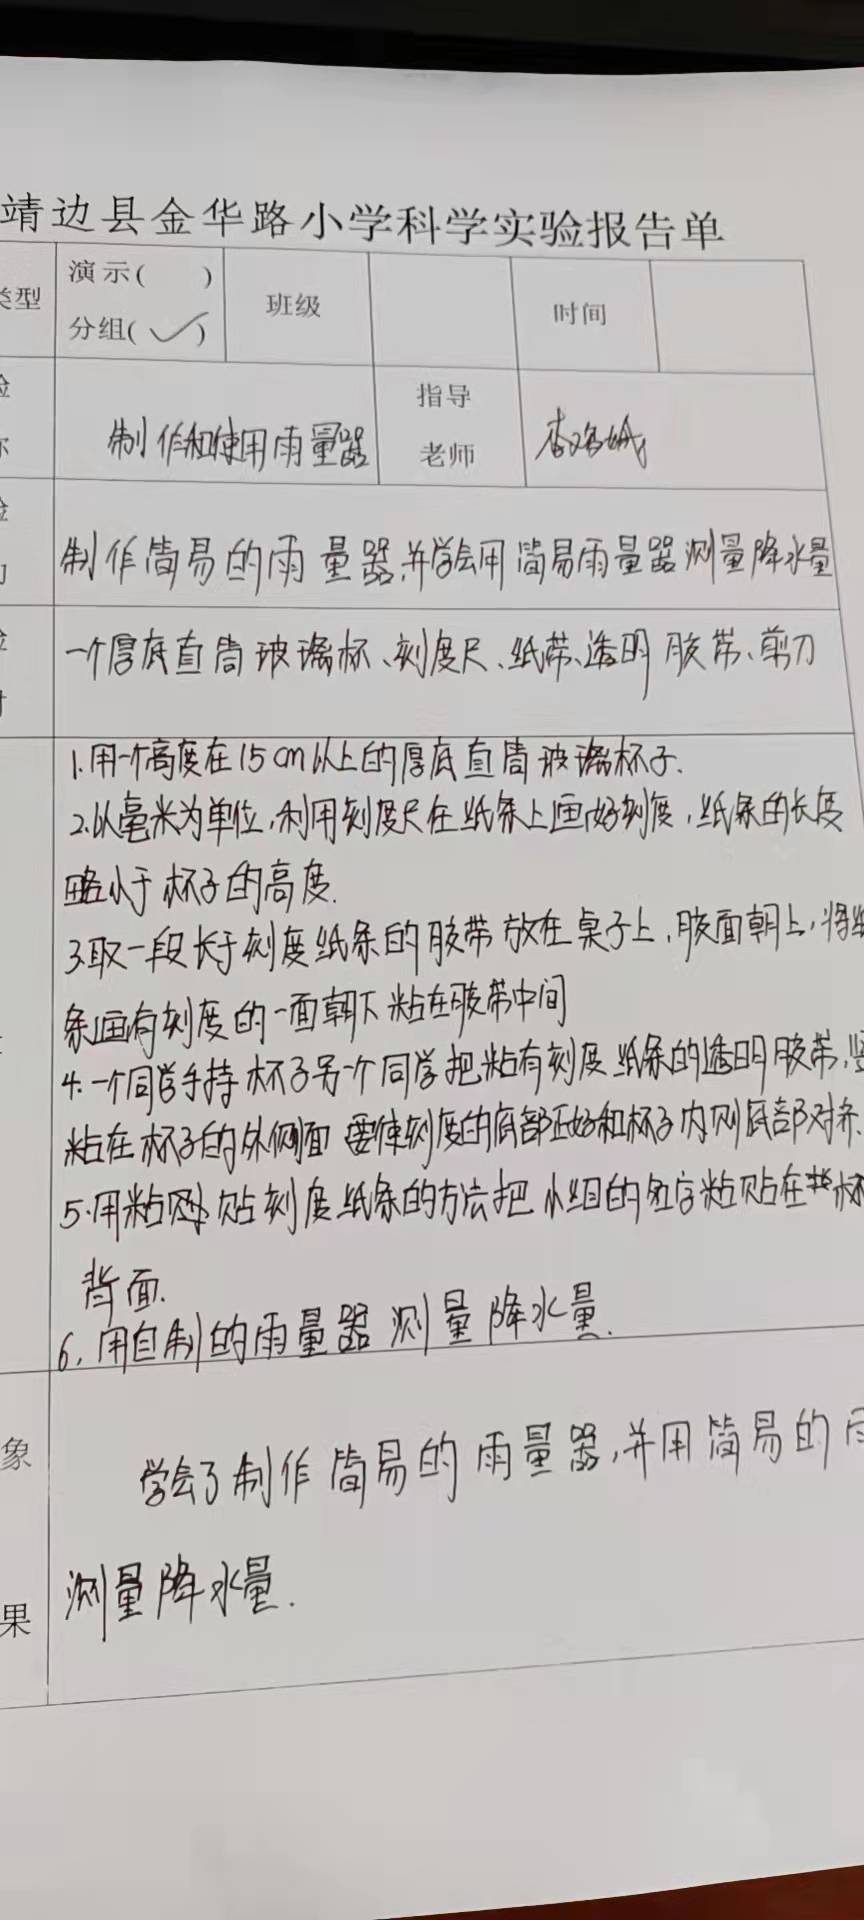 靖边县金华路小学科学实验报告单
类型 演示( ) 分组(✓) 班级 时间
制作和使用雨量器 指导老师
制作简易的雨量器,并学会用简易雨量器测量降水量
一个厚底直筒玻璃杯、刻度尺、纸带、透明胶带、剪刀
1.用一个高度在15cm以上的厚底直筒玻璃杯子.
2.以毫米为单位,利用刻度尺在纸条上画好刻度,纸条的长度
略小于杯子的高度.
3.取一段长于刻度纸条的胶带放在桌子上,胶面朝上,将纸
条画有刻度的一面朝下粘在胶带中间
4.一个同学手持杯子另一个同学把粘有刻度纸条的透明胶带,竖
粘在杯子的外侧面 要使刻度的底部正好和杯子内侧底部对齐.
5.用粘贴刻度纸条的方法把小组的名字粘贴在杯
背面.
6.用自制的雨量器测量降水量.
象 学会了制作简易的雨量器,并用简易的雨
果 测量降水量.